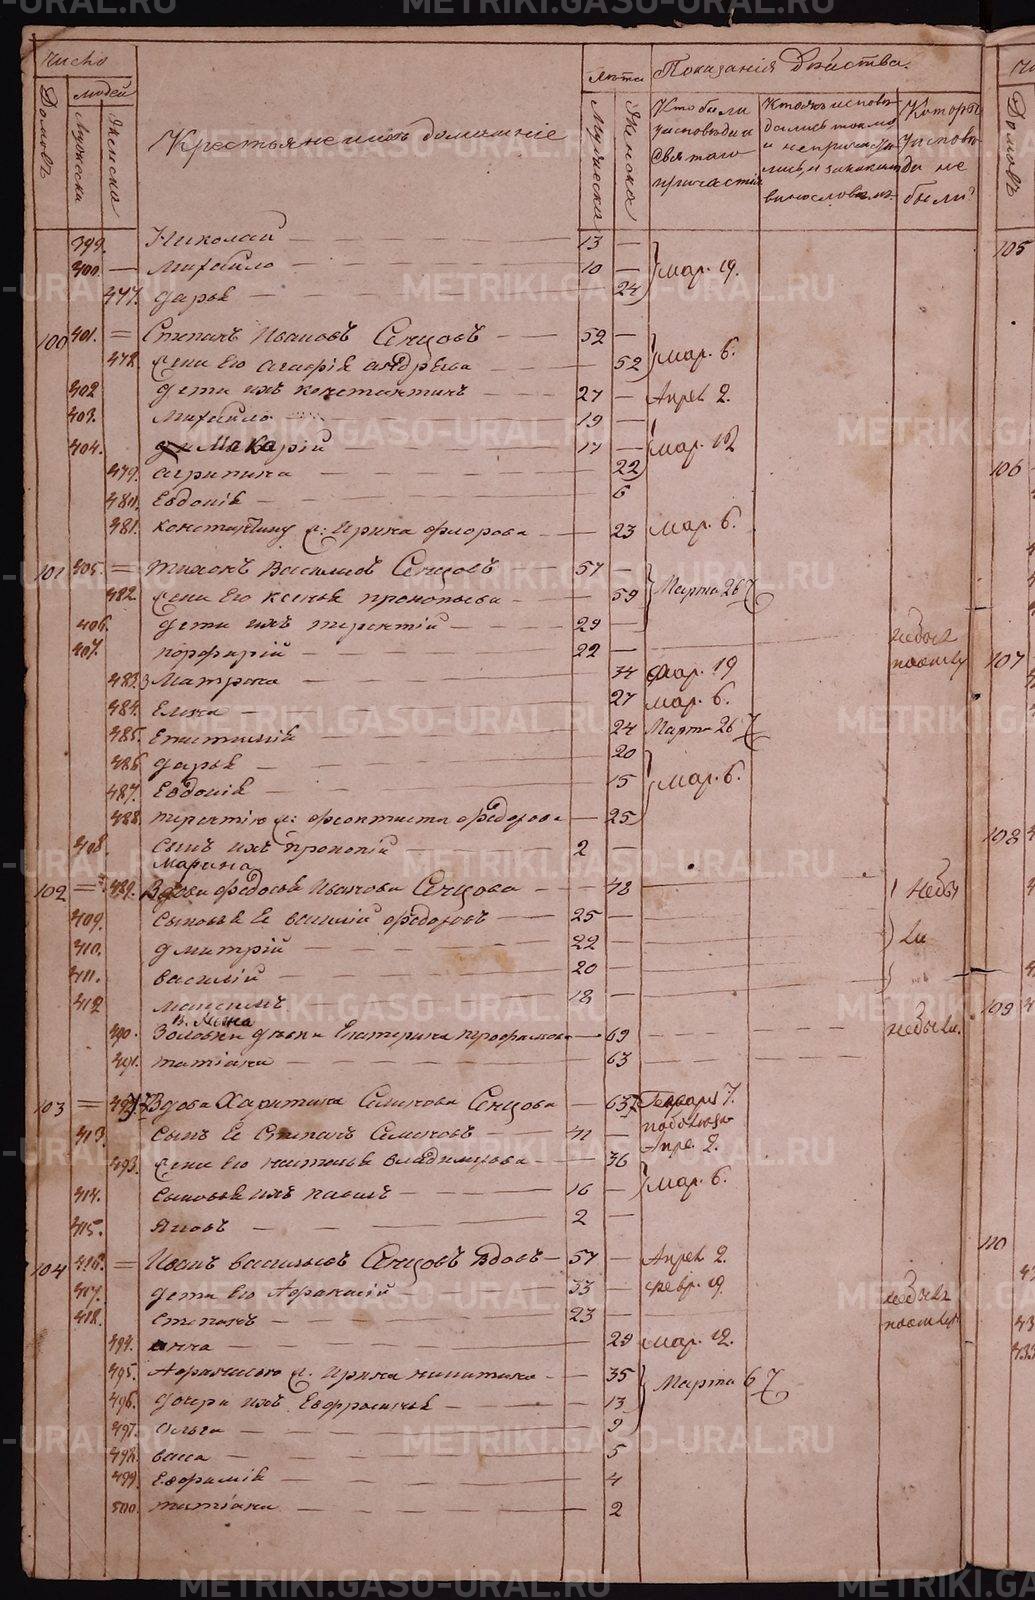 Число
Домовъ
людей
Мужеска
Женска
Крестьяне и ихъ домашніе
Лѣта
Мужеска
Женска
Показанія дѣйства.
Кто были у исповѣди и святаго причастія
Кто жъ исповѣдались токмо и не причастились, и за какимъ винословіемъ
Которые у исповѣди не были?
399. Николай 13
400. Михайло 10 Мар. 19.
477. Дарья 24
100 401. Степанъ Ивановъ Сенцовъ 52
478. Жена его Агафія Андрѣева 52 Мар. 6.
402 Дети ихъ Константинъ 27 Апрел. 2.
403. Михайло 19
404. Макарій 17 Мар. 12
479. Агрипина 22
480. Евдокія 6
481. Константину ж: Ирина Флорова 23 Мар. 6.
101 405. Тихонъ Василіевъ Сенцовъ 57
482. Жена его Ксенья Прокопьева 59 Марта 26
406. Дети ихъ Терентій 29
407. Порфирій 22 небыл
483. Матрона 34 Мар. 19
484. Елена 27 Мар. 6.
485. Епистимія 24 Марта 26
486 Дарья 20
487. Евдокія 15 Мар. 6.
488. Терентію ж: Феоктиста Федорова 25
408. Сынъ ихъ Прокопій 2
Марина
102 489. Вдова Федосья Иванова Сенцова 48 Небы
409. Сыновья Ее Василій Федоровъ 25 ли
410. Дмитрій 22
411. Василій 20
412 Максимъ 18
490. Золовки девки Екатерина 69 небыли.
491. Татіана 63
103 492 Вдова Харитина Семенова Сенцова 63 Генваря 7.
413. Сынъ Ее Степанъ Семеновъ 41 Апре. 2.
493. Жена его Настасья Владимирова 36
414. Сыновья ихъ Павелъ 16 Мар. 6.
415. Яковъ 2
104 416. Иванъ Васильевъ Сенцовъ Вдовъ 57 Апрел 2.
417. Дети его Афанасій 33 Февр. 19.
418. Степанъ 23 небылъ
494. Анна 29 Мар. 12.
495. Афанасію ж. Ирина Никитина 35
496. Дочери ихъ Евфросинья 13 Марта 6
497. Ольга 9
498. Васса 5
499 Евфимія 4
500. Татіана 2
105
106
107
108
109
110
METRIKI.GASO-URAL.RU